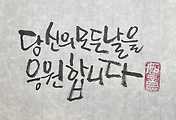 당신의 모든 날을
응원합니다